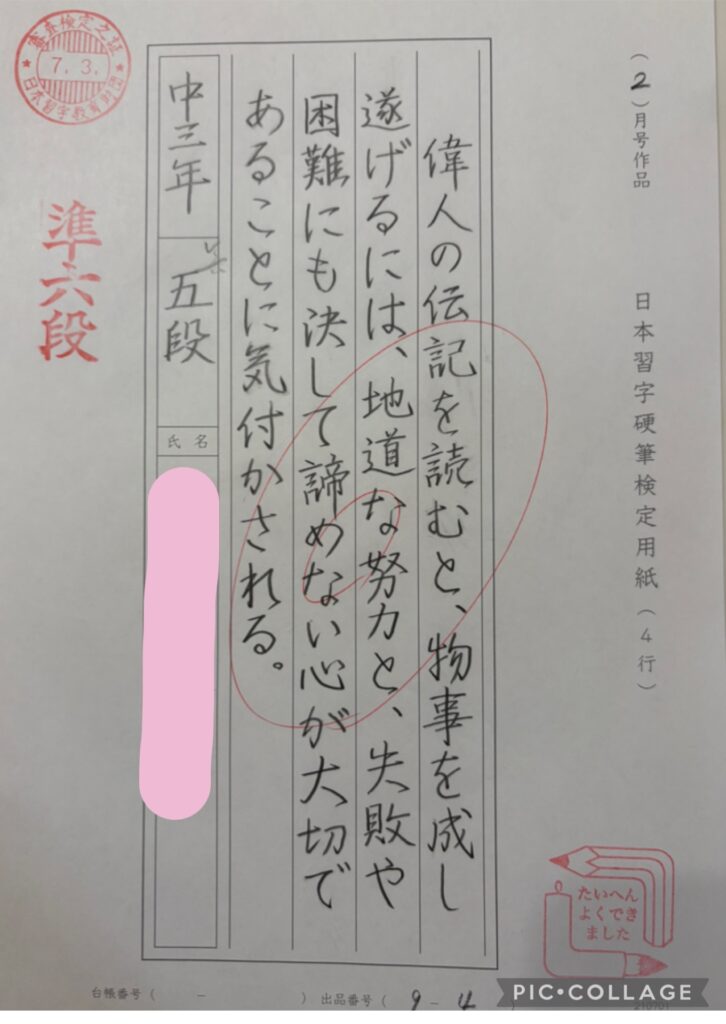 (2)月号作品
日本習字硬筆検定用紙(4行)
偉人の伝記を読むと、物事を成し
遂げるには、地道な努力と、失敗や
困難にも決して諦めない心が大切で
あることに気付かされる。
中三年
五段
氏名
準六段
審査検定之証
7.3.
日本習字教育財団
たいへん
よくでき
ました
台帳番号( - )
出品番号(9-4)
PIC•COLLAGE